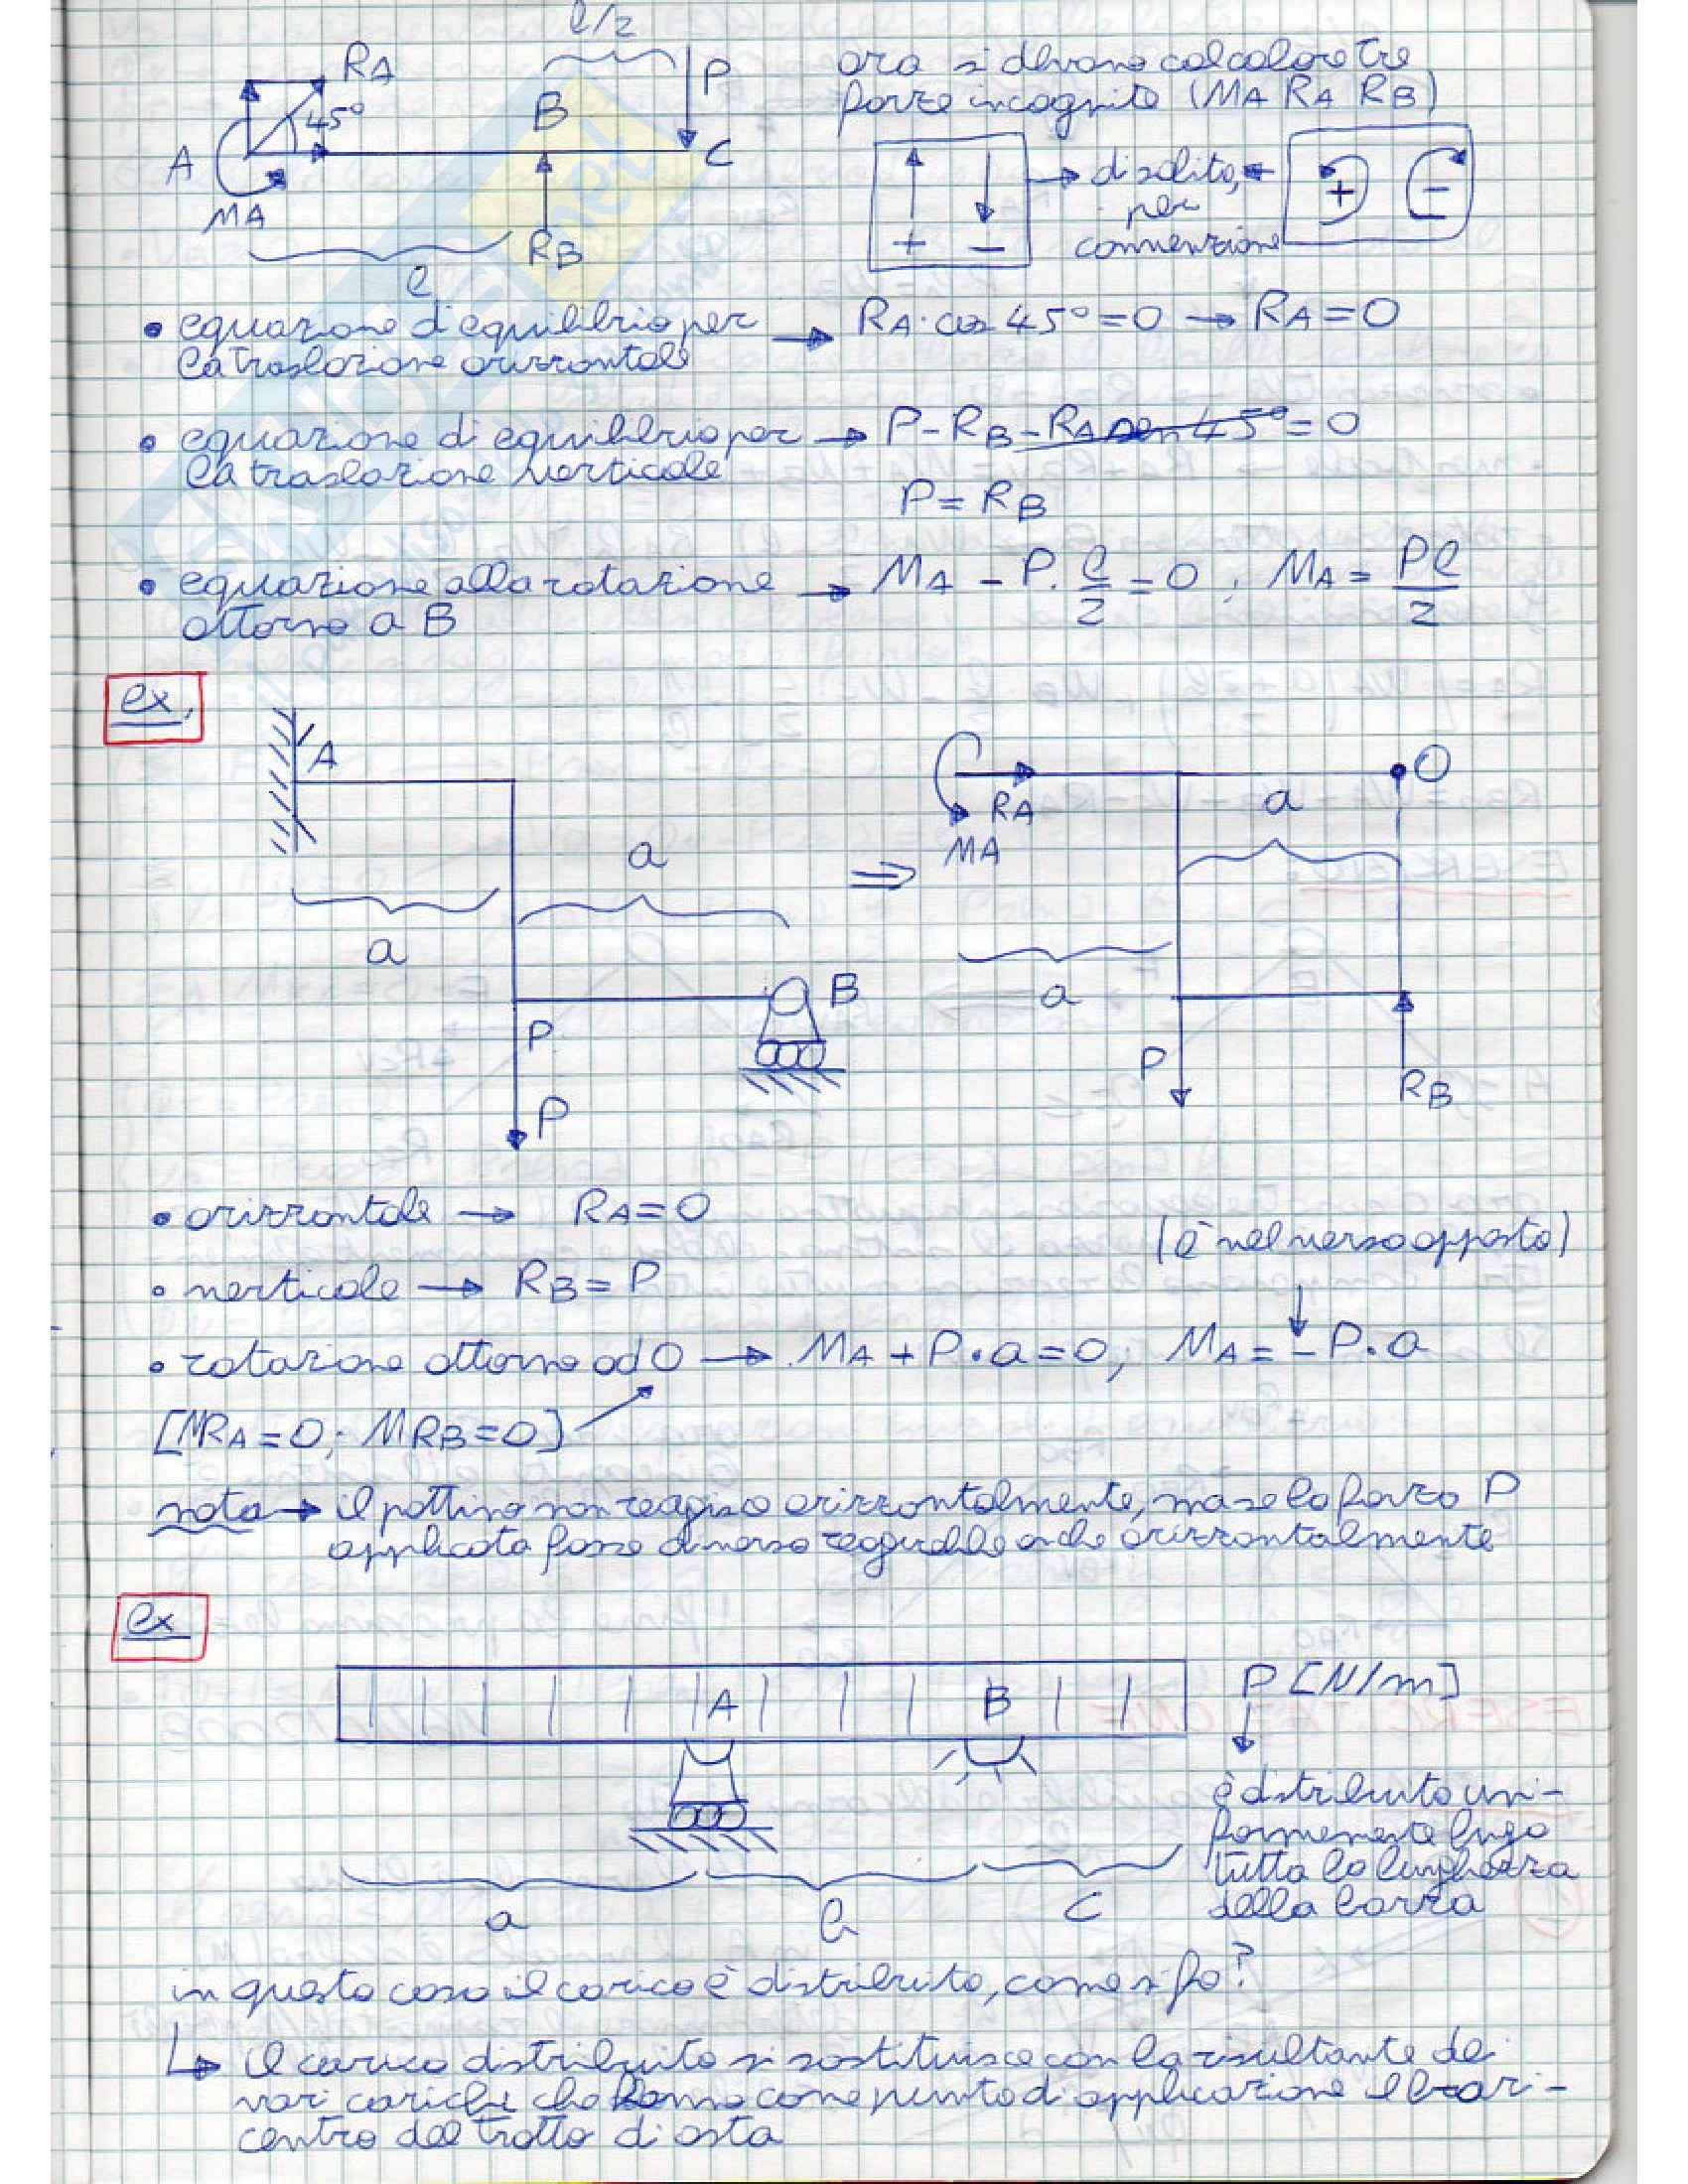 l/2
RA
45°
A
MA
B
P
C
RB
l
ora si devono calcolare tre
forze incognite (MA RA RB)
+ −
di solito,
per
convenzione
+ −
• equazione d'equilibrio per → RA·cos 45°=0 → RA=0
la traslazione orizzontale
• equazione di equilibrio per → P-RB-RA sen 45°=0
la traslazione verticale
P=RB
• equazione alla rotazione → MA - P·l/2=0, MA=Pl/2
attorno a B
ex.
A
a
a
B
P
P
⇒
RA
MA
O
a
a
P
RB
• orizzontale → RA=0
(è nel verso opposto)
• verticale → RB=P
• rotazione attorno ad O → MA+P·a=0, MA=-P·a
[MRA=0; MRB=0]
nota → il pattino non reagisce orizzontalmente, ma se la forza P
applicata fosse diversa reagirebbe anche orizzontalmente
ex
A
B
P [N/m]
è distribuito uni-
formemente lungo
tutta la lunghezza
della barra
a
b
c
in questo caso il carico è distribuito, come si fa?
↳ il carico distribuito si sostituisce con la risultante dei
vari carichi che hanno come punto di applicazione il bari-
centro del tratto di asta